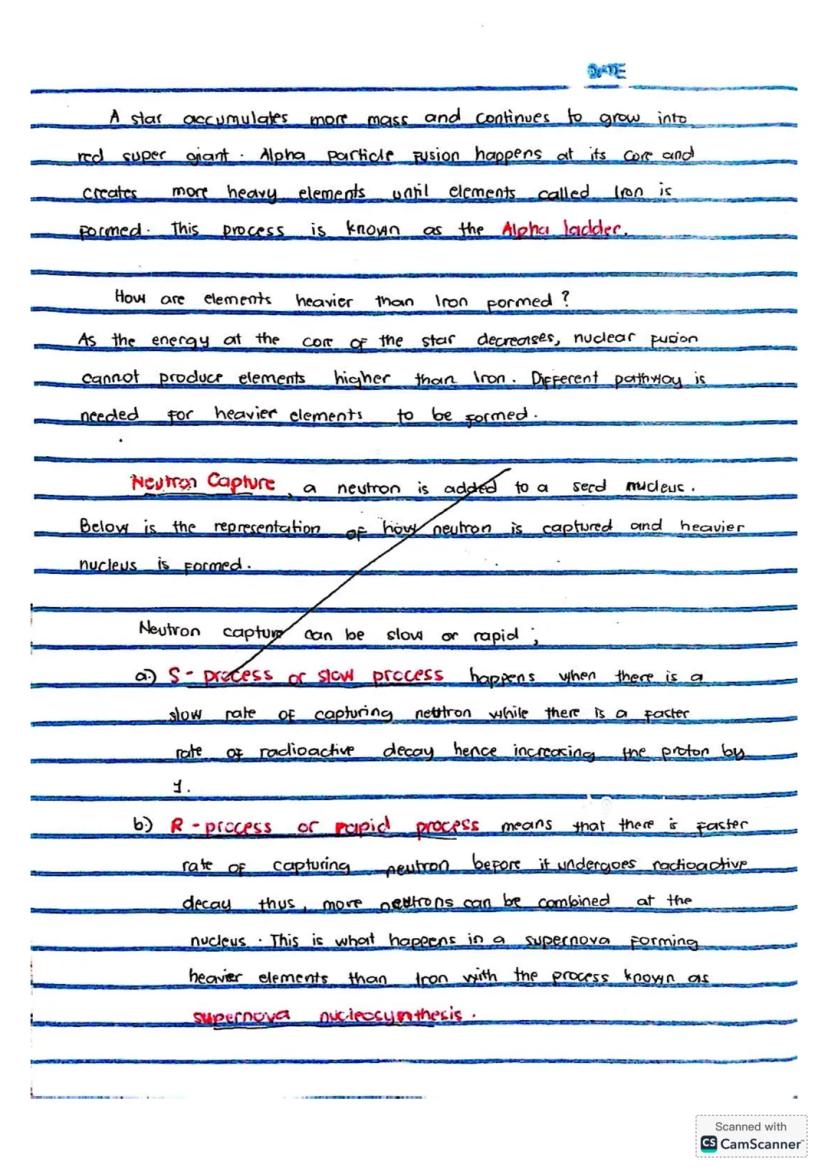 DATE
A star accumulates more mass and continues to grow into
red super giant. Alpha particle fusion happens at its core and
creates more heavy elements until elements called Iron is
formed. This process is known as the Alpha ladder.
How are elements heavier than Iron formed?
As the energy at the core of the star decreases, nuclear fusion
cannot produce elements higher than Iron. Different pathway is
needed for heavier elements to be formed.
Neutron Capture, a neutron is added to a seed nucleus.
Below is the representation of how neutron is captured and heavier
nucleus is formed.
Neutron capture can be slow or rapid;
a.) S - process or slow process happens when there is a
slow rate of capturing neutron while there is a faster
rate of radioactive decay hence increasing the proton by
1.
b.) R - process or rapid process means that there is faster
rate of capturing neutron before it undergoes radioactive
decay thus, more neutrons can be combined at the
nucleus. This is what happens in a supernova forming
heavier elements than Iron with the process known as
supernova nucleosynthesis.
Scanned with
CS CamScanner